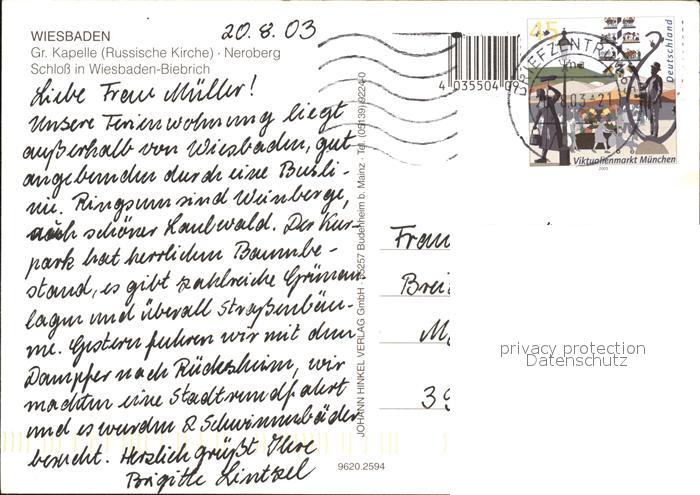 WIESBADEN
Gr. Kapelle (Russische Kirche) · Neroberg
Schloß in Wiesbaden-Biebrich
20.8.03
Liebe Frau Müller!
Unsere Ferienwohnung liegt
außerhalb von Wiesbaden, gut
angebunden durch eine Busli-
nie. Ringsum sind Weinberge,
auch schöner Laubwald. Der Kur-
park hat herrlichen Baumbe-
stand, es gibt zahlreiche Grünan-
lagen und überall Straßenbäu-
me. Gestern fuhren wir mit dem
Dampfer nach Rüdesheim, wir
machten eine Stadtrundfahrt
und es wurden 2 Schwimmbäder
besucht. Herzlich grüßt Ihre
Brigitte Lintzel
JOHANN HINKEL VERLAG GmbH · 55257 Budenheim b. Mainz · Tel. (06139) 9224-0
9620.2594
4 035504 09
45
Deutschland
BRIEFZENTRUM
Viktualienmarkt München
2003
Frau
Brei
M
39
privacy protection
Datenschutz